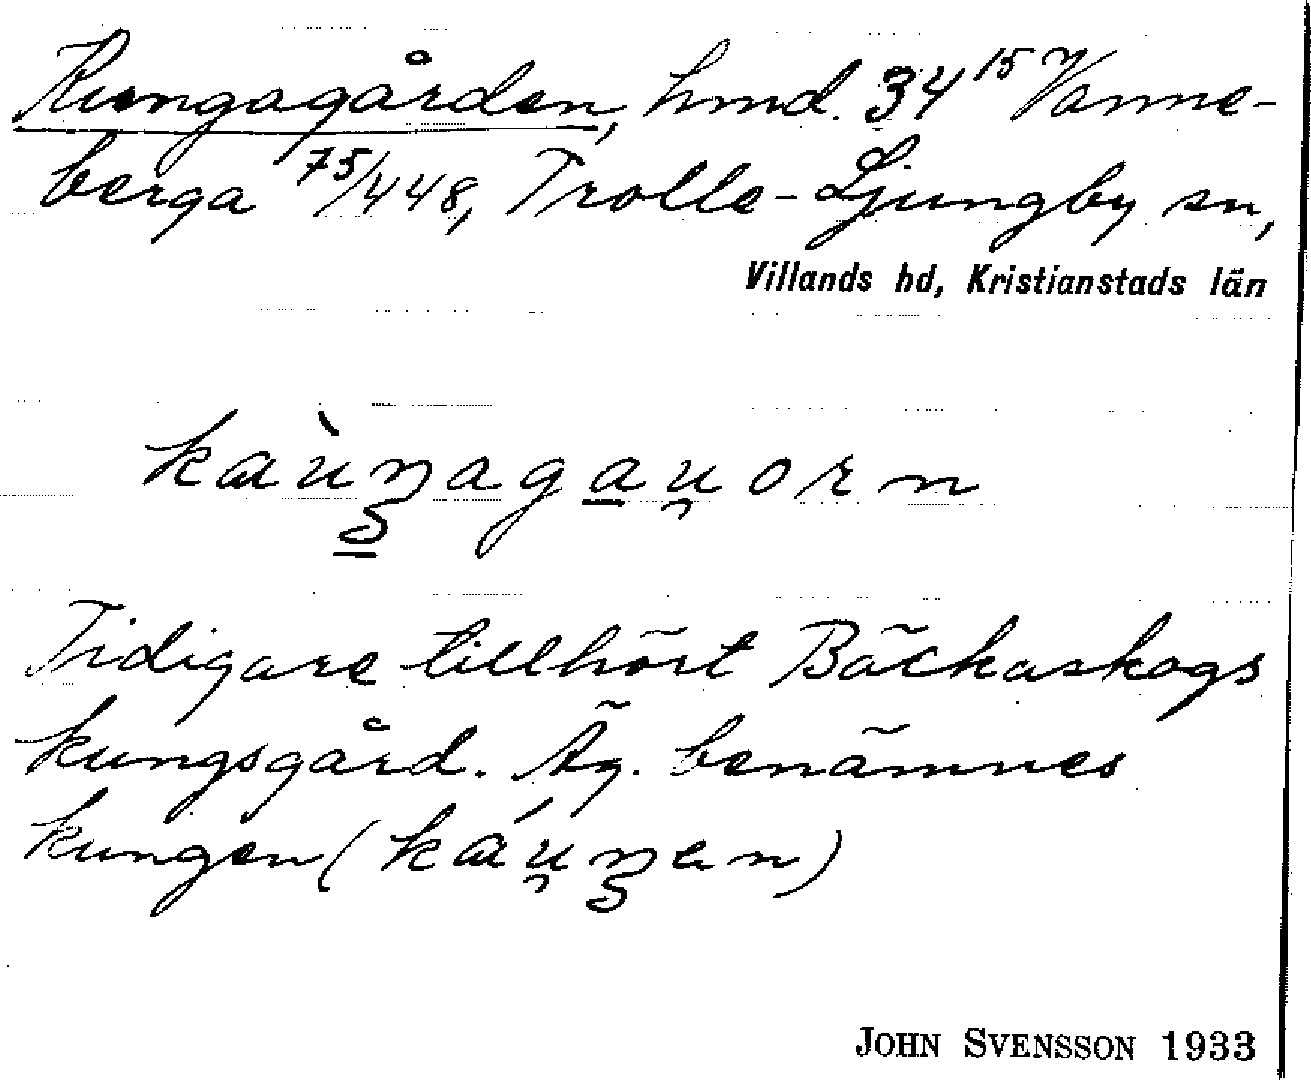 Kungagården, hmd. 34¹⁵ Vanne-
berga ⁷⁵/448, Trolle-Ljungby sn,
Villands hd, Kristianstads län
Tidigare tillhört Bäckaskogs
kungsgård. Äg. benämnes
kungen (
JOHN SVENSSON 1933